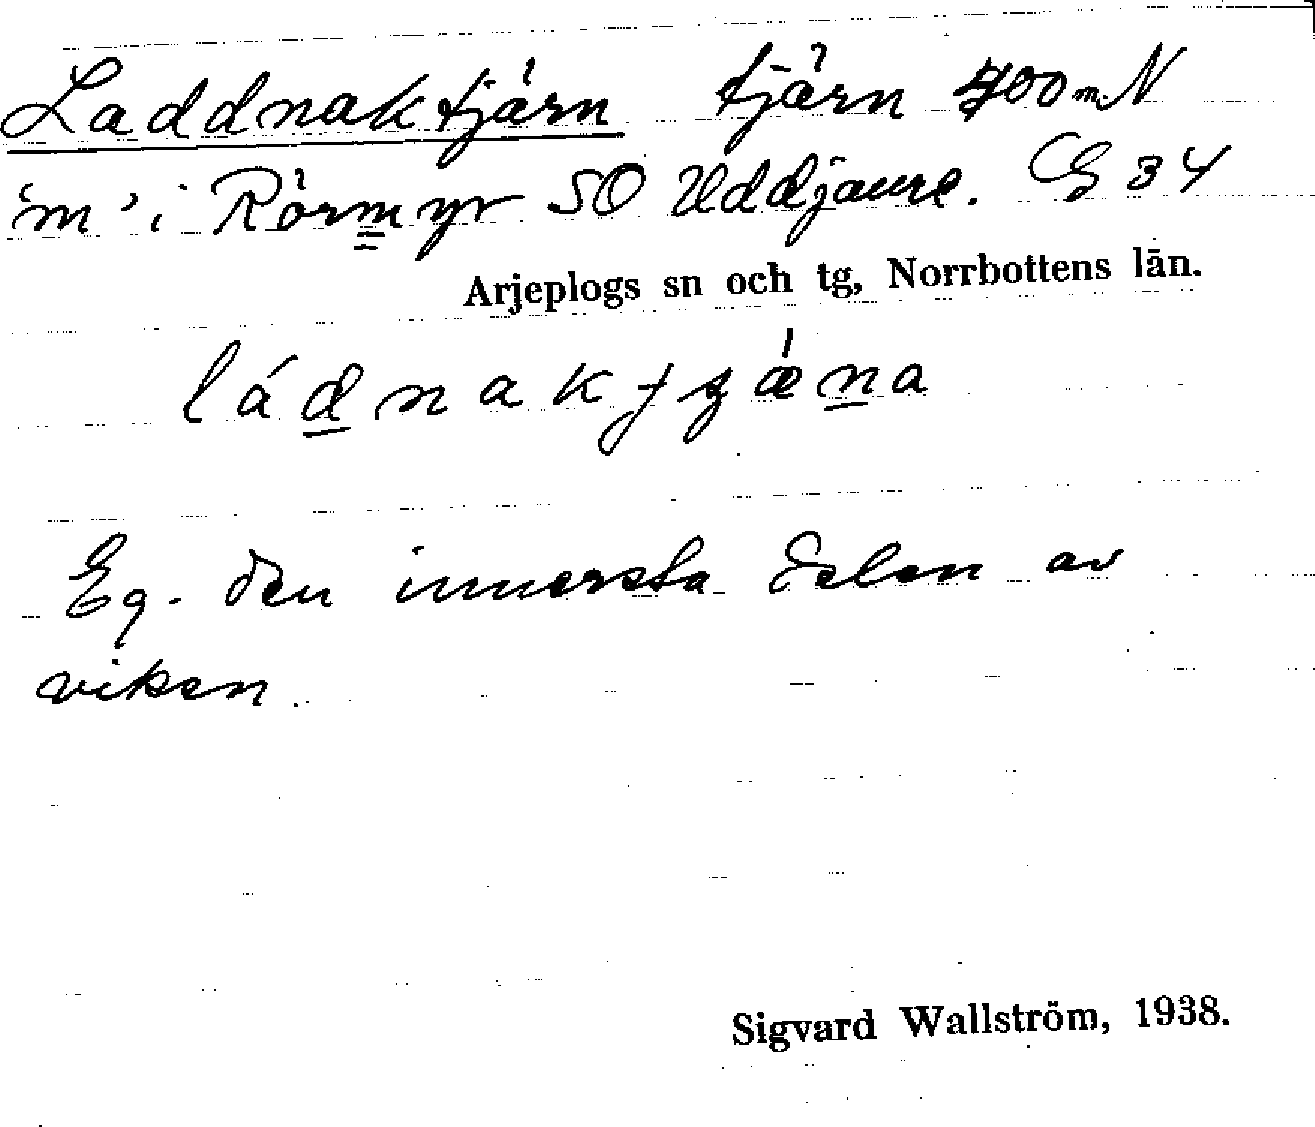 Laddnaktjärn tjärn 400 m. N
"m" i Rörmyr SO Uddjaure. G 34
Arjeplogs sn och tg, Norrbottens län.
Eg. den innersta delen av
viken.
Sigvard Wallström, 1938.